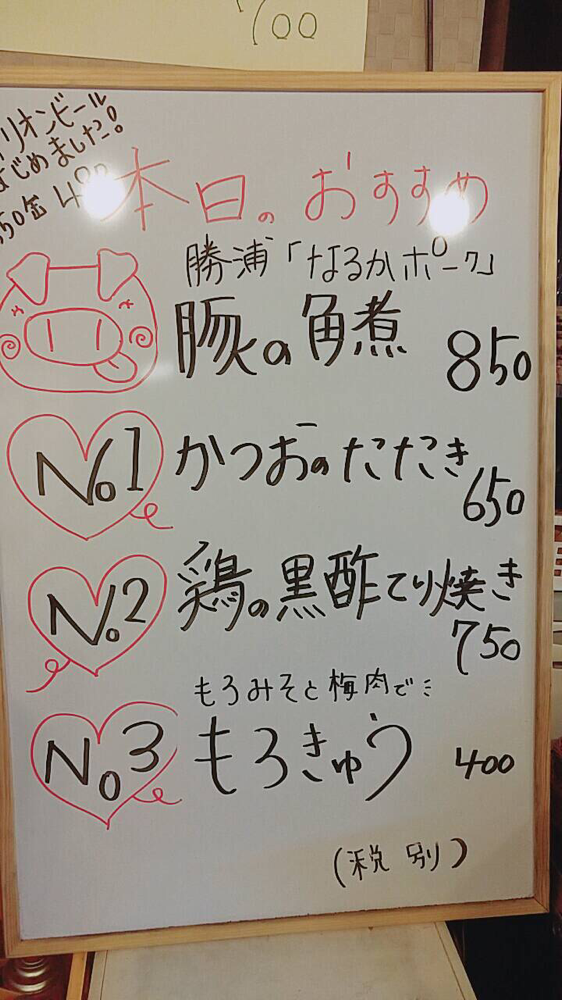 700
リオンビール
はじめました!
350缶
本日のおすすめ
勝浦「なるかポーク」
豚の角煮 850
No.1 かつおのたたき
650
No.2 鶏の黒酢てり焼き
750
もろみそと梅肉で…
No.3 もろきゅう 400
(税別)